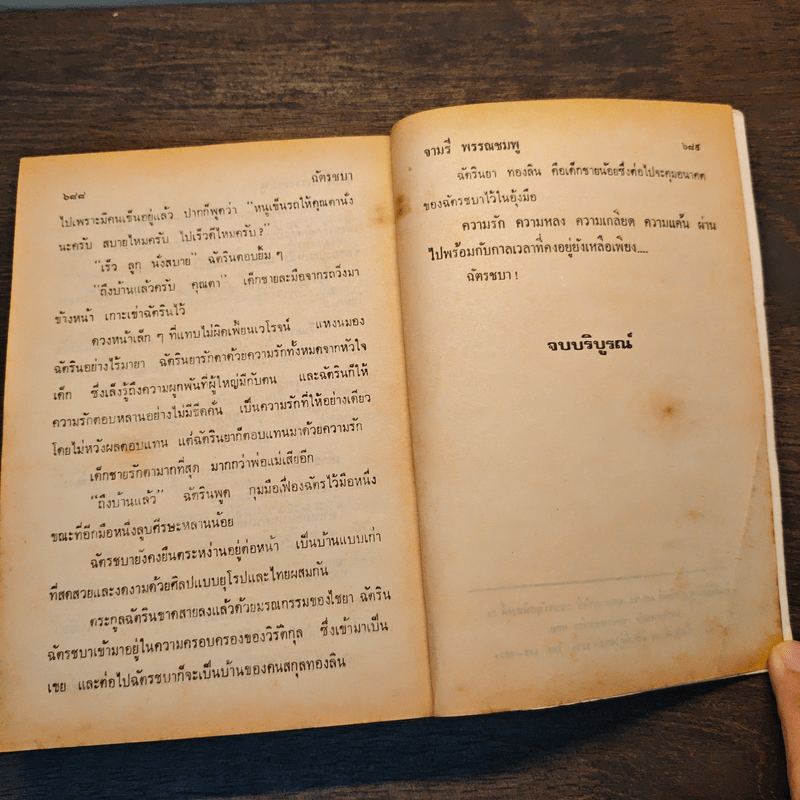 ๖๘๘
ฉัตรชบา
ไปเพราะมีคนเข็นอยู่แล้ว ปากก็พูดว่า "หนูเข็นรถให้คุณตานั่ง
นะครับ สบายไหมครับ ไปเร็วดีไหมครับ?"
"เร็ว ลูก นั่งสบาย" ฉัตรินตอบยิ้ม ๆ
"ถึงบ้านแล้วครับ คุณตา" เด็กชายละมือจากรถวิ่งมา
ข้างหน้า เกาะเข่าฉัตรินไว้
ดวงหน้าเล็ก ๆ ที่แทบไม่ผิดเพี้ยนเวโรจน์ แหงนมอง
ฉัตรินอย่างไร้มายา ฉัตรินยารักตาด้วยความรักทั้งหมดจากหัวใจ
เด็ก ซึ่งเล็งรู้ถึงความผูกพันที่ผู้ใหญ่มีกับตน และฉัตรินก็ให้
ความรักตอบหลานอย่างไม่มีขีดคั่น เป็นความรักที่ให้อย่างเดียว
โดยไม่หวังผลตอบแทน แต่ฉัตรินยาก็ตอบแทนมาด้วยความรัก
เด็กชายรักตามากที่สุด มากกว่าพ่อแม่เสียอีก
"ถึงบ้านแล้ว" ฉัตรินพูด กุมมือเฟื่องฉัตรไว้มือหนึ่ง
ขณะที่อีกมือหนึ่งลูบศีรษะหลานน้อย
ฉัตรชบายังคงยืนตระหง่านอยู่ต่อหน้า เป็นบ้านแบบเก่า
ที่สดสวยและงดงามด้วยศิลปแบบยุโรปและไทยผสมกัน
ตระกูลฉัตรินขาดสายลงแล้วด้วยมรณกรรมของไชยา ฉัตริน
ฉัตรชบาเข้ามาอยู่ในความครอบครองของวิรัติกุล ซึ่งเข้ามาเป็น
เขย และต่อไปฉัตรชบาก็จะเป็นบ้านของคนสกุลทองลิน
จามรี พรรณชมพู
๖๘๙
ฉัตรินยา ทองลิน คือเด็กชายน้อยซึ่งต่อไปจะคุมอนาคต
ของฉัตรชบาไว้ในอุ้งมือ
ความรัก ความหลง ความเกลียด ความแค้น ผ่าน
ไปพร้อมกับกาลเวลาที่คงอยู่ยังเหลือเพียง....
ฉัตรชบา !
จบบริบูรณ์